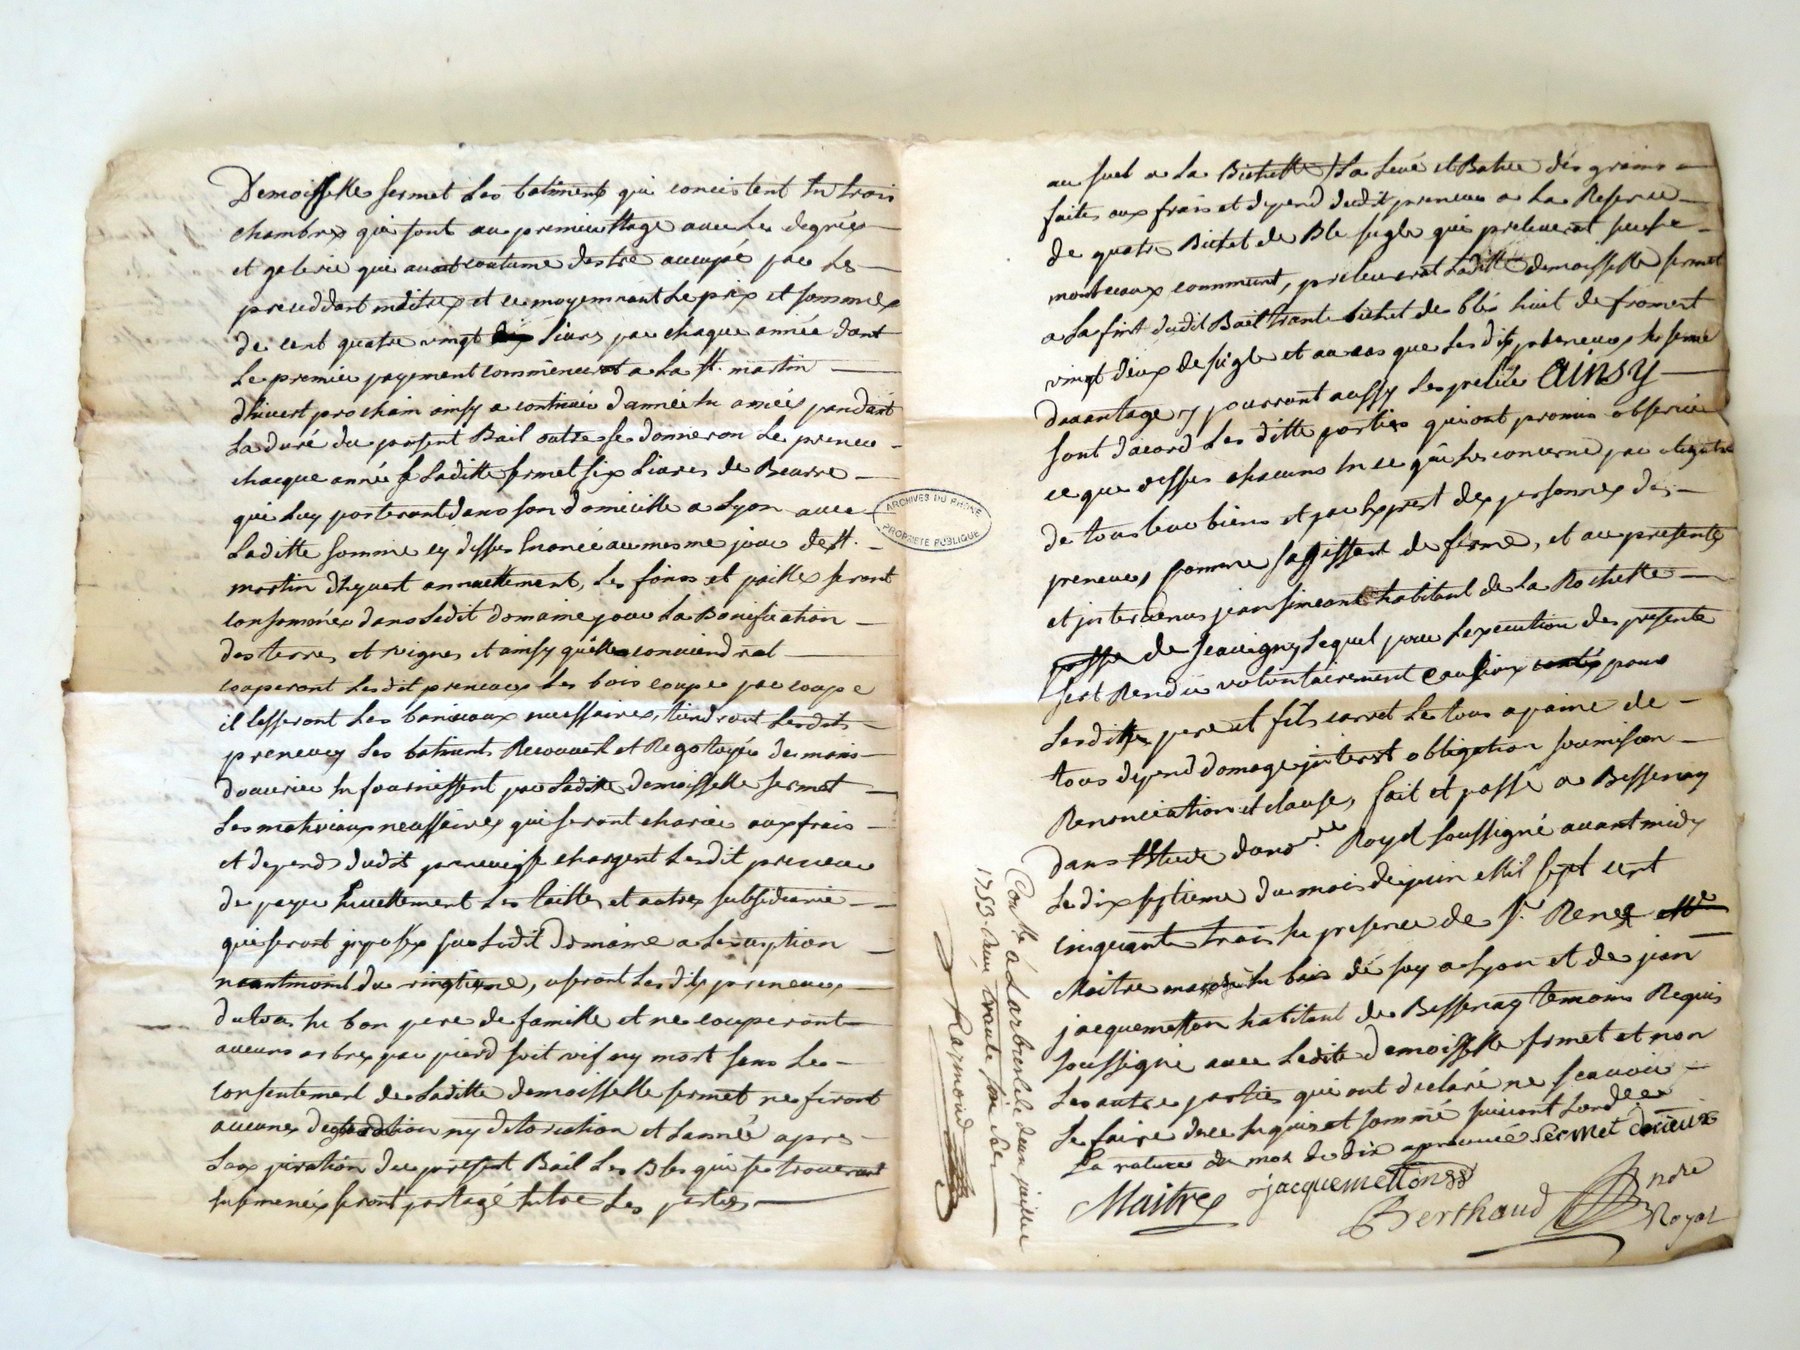 Demoiselle fermet Les batiments qui concistent En trois
chambres qui sont au premier Etage avec Les degrées
et galerie qui avoit coutume destre accupée par Les
de cent quatre vingt Livres par chaque année dont
Le premier payement commencerat a La St. martin
dhivert prochain ainsy a continuer d'année En année pandant
La duré du present Bail outre se donneron Le preneur
chaque année a Laditte fermet six Livres de Beurre
qui Luy porteront dans son domicille a Lyon avec
Laditte somme cy dessus au mesme jour de St.
martin dhyvert annuellement, Les foins et pailles seront
consommées dans Ledit domaine pour La Bonification
des terres et vignes et ainsy quelle conviendrat
couperont Lesdit preneurs Les bois coupe par coupe
il Lesseront Les baniveaux necessaires, tiendront Lesdits
preneurs Les batiments Recouvert et Regotoyés de main
douvrier En fournissent par Laditte Demoisselle fermet
Les materiaux necessaires qui seront chariés aux frais
et depend dudit preneurs chargent Lesdit preneur
de payer Les tailles et autres subsidiaire
qui seront imposés sur Ledit Domaine a Lexception
neantmoint du vingtieme, useront Lesdits preneurs
du tout En bon pere de famille et ne couperont
aucuns arbres par pierd soit vif ny mort sans Le
consentement de Laditte demoisselle fermet ne feront
aucunes degradation ny deterioration et Lannée apres
Lexpiration du present Bail Les Bles qui se trouveront
Ensemencés seront partagé Entre Les parties
au suel a La Bichette La Levé et Batue des grains
faites aux frais et depend dudit preneur a La Reserve
de quatre Bichet de Ble segle qui preleverat sur Le
monceaux commun, preleverat Laditte demoisselle fermet
a La fin dudit Bail trante bichet de blés huit de froment
vingt deux de segle et au cas que Lesdits preneurs En seme
davantage ils pourront aussy Les prelever Ainsy
sont dacord Les ditte parties qui ont promis observer
ce que dessus chacuns En ce qui Les concerne par
de tous leur biens et par Exprest des personnes des
preneurs comme sagissant de ferme, et au presente
et intervenus jean simeont habitant de La Rochette
de Seavigny Lequel pour Lexecution des presente
sest Rendu volontairement caution pour
Lesdittes pere et fils Le tous a paine de
tous depend domage interest obligation soumision
Renonciation et clause, fait et passé a Bessenay
dans Etude dano.re Royal soussigné avant midy
Le dix septieme du mois de juin Mil sept cent
cinquante trois En presence de sr. Rene
Maitre marchand En bas de soy a Lyon et de jean
jacquemetton habitant de Bessenay temoins Requis
soussigné avec Ledite Demoisselle fermet et non
Les autre parties qui ont declaré ne scavoir
Le faire de ce Enquis et sommé suivant Lordce
La rature du mot de dix aprouvée Fermet
Maitrex jacquemetton
Berthaud Andre
Royal
Con.lle a Larbresle le deux juillet
1753. Reçu trente six sols
Raymond
ARCHIVES DU RHONE
PROPRIÉTÉ PUBLIQUE